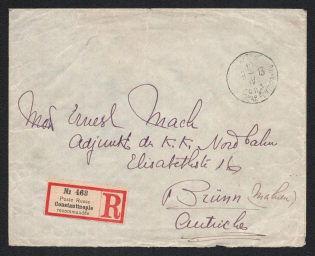 Mons Ernest Mach
Adjunkt der K.K. Nordbahn
Elisabethstr 16
Brünn (Mähren)
Autriche
№ 468
Poste Russe
Constantinople
recommandée
R